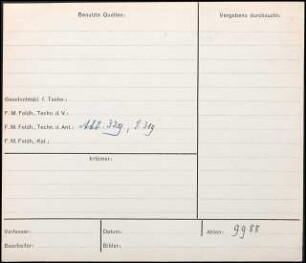 Benutzte Quellen:
Vergebens durchsucht:
Geschichtsbl. f. Techn.:
F. M. Feldh., Techn. d. V.:
F. M. Feldh., Techn. d. Ant.: Abb. 329, S. 319
F. M. Feldh., Kul.:
Irrtümer:
Verfasser:
Datum:
Akten: 9988
Bearbeiter:
Bilder: